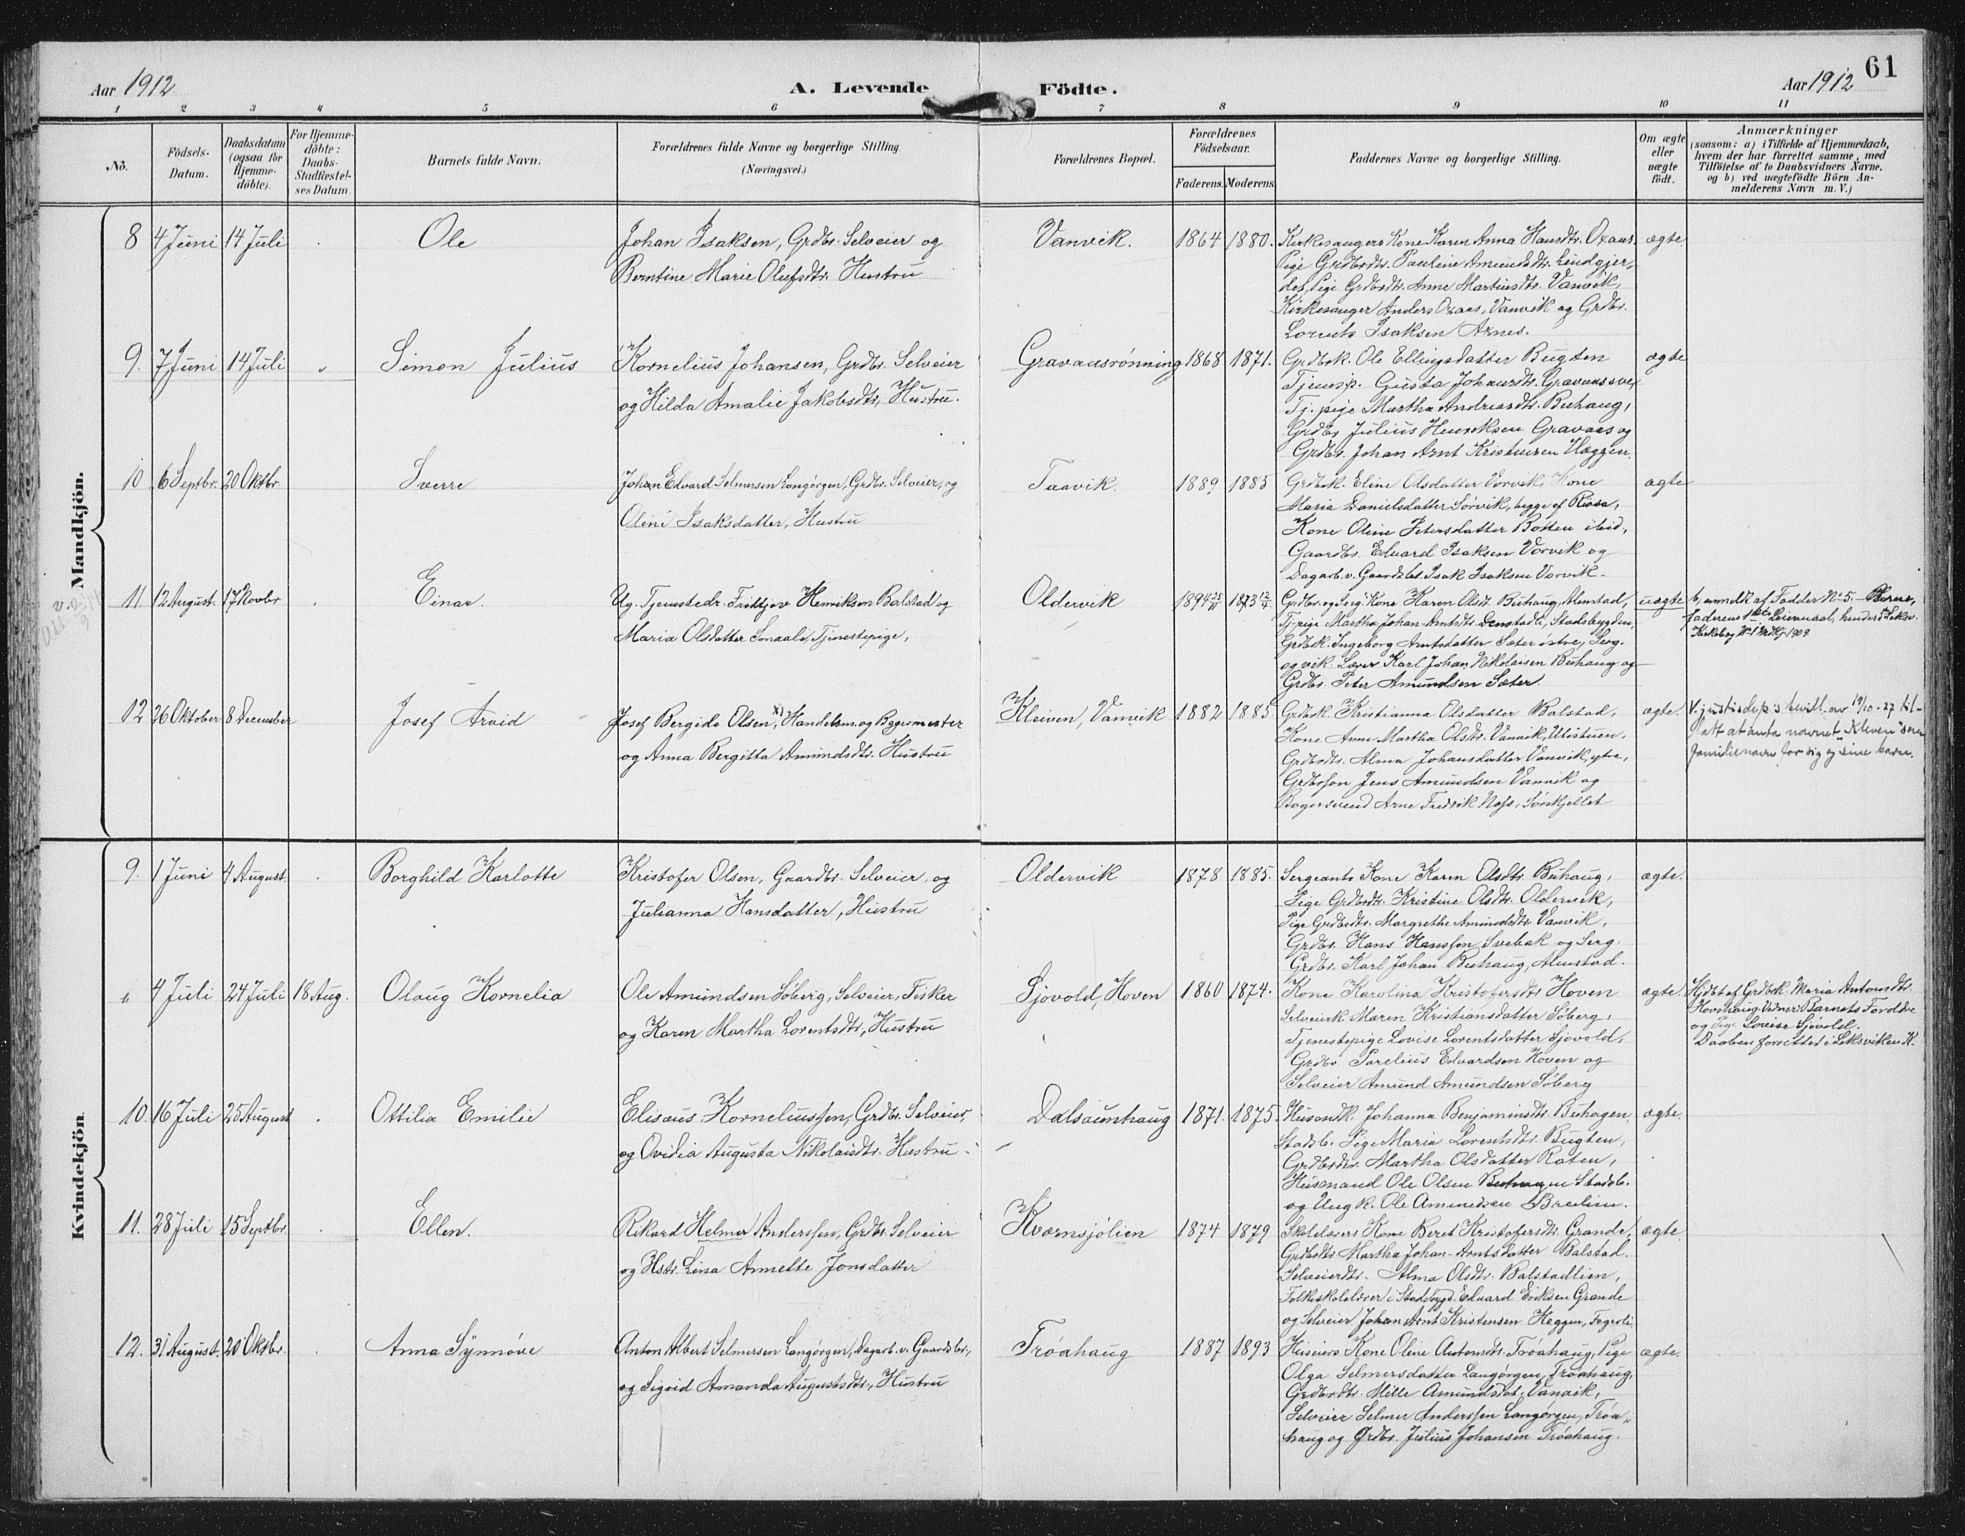 61
Aar 1912
A. Levende Födte.
Aar 1912
1 2 3 4 5 6 7 8 9 10 11
No.
Födsels-
Datum.
Daabsdatum
(ogsaa for
Hjemme-
döbte).
For Hjemme-
döbte:
Daabs-
Stadfæstel-
ses Datum.
Barnets fulde Navn.
Forældrenes fulde Navne og borgerlige Stilling.
(Næringsvei.)
Forældrenes Bopæl.
Forældrenes
Födselsaar.
Faderens. Moderens
Faddernes Navne og borgerlige Stilling.
Om ægte
eller
uægte
födt.
Anmærkninger
(saasom: a) i Tilfælde af Hjemmedaab,
hvem der har forrettet samme, med
Tilföielse af to Daabsvidners Navne,
og b) ved uægtefödte Börn An-
melderens Navn m. V.)
Mandkjön.
8 4 Juni 14 Juli Ole
Johan Isaksen, Grdbr. Selveier og
Berntine Marie Olufsdtr. Hustru
Vanvik. 1864 1880.
Kirkesangers Kone Karen Anna Hansdtr. Oxaas
Pige Grdbrdtr. Pauline Amundsdtr. Lindgjer-
det, Pige Grdbrdtr. Anne Martinsdtr. Vanvik,
Kirkesanger Anders Oxaas, Vanvik og Grdbr.
Lorents Isaksen Aznes.
ægte
9. 7 Juni 14 Juli Simon Julius
Kornelius Johansen, Grdbr. Selveier
og Hilda Amalie Jakobsdtr., Hustru.
Gravaasrønning 1868 1871.
Grdbrk. Ole Ellingsdatter Bugten
Tjenstp. Gusta Johansdtr. Gravaas
Tj. pige Martha Andreasdtr. Buhaug,
Grdbr. Julius Henriksen Gravaas og
Grdbr. Johan Arnt Kristensen Hæggen.
ægte
10 6 Septbr. 20 Oktbr. Sverre
Johan Edvard Selmersen Langørgen, Grdbr. Selveier, og
Oline Isaksdatter, Hustru
Taavik. 1889 1885
Grdbrk. Eline Olsdatter Vorvik, Kone
Maria Danielsdatter Sørvik, begge af Rissa,
Kone Oline Petersdatter Botten ibid,
Gaardbr. Edvard Isaksen Vorvik og
Dagarb. v. Gaardsbr. Isak Isaksen Vorvik.
ægte
11. 12 August. 17 Novbr Einar.
Ug. Tjenstedr. Fridtjov Henriksen Balstad og
Maria Olsdatter Sonaali, Tjenestepige,
Oldervik 1894 1873
Grdbr. og Serg. Kone Karen Olsdtr. Buhaug, Almstad,
Tj. pige Martha Johan-Arntsdtr. Denstadli, Stadsbygden,
Grdbrk. Ingeborg Arntsdatter Sæter østre,
Lærer Karl Johan Nikolaisen Buhaug og
Grdbr. Peter Amundsen Sæter.
uægte
b, anmeldt af Fadder No 5 Barne-
faderens 1ste Leiermaal, hendes
Kirkebog 1909
12 26 Oktober 8 December Josef Arvid
Josef Bergido Olsen, x) Handelsm. og Bygmester
og Anna Bergitta Amundsdtr. Hustru
Kleiven, Vanvik 1882 1885.
Grdbrk. Kristianna Olsdatter Balstad,
Kone Anne Martha Olsdtr. Vanvik,
Grdbrdtr. Alma Johansdatter Vanvik, ytre,
Grdbrsøn Jens Amundsen Vanvik og
Bagersvend Arne Fredrik Næss, Sørskjellet
ægte.
V. justisdep.s bevill. av 19/10-27 til-
latt at anta navnet "Kleven" som
familienavn for sig og sine barn.
Kvindekjön
9. 1 Juni 4 August. Borghild Karlotte
Kristofer Olsen, Gaardbr. Selveier, og
Julianna Hansdatter, Hustru
Oldervik 1878 1885.
Sergeants Kone Karen Olsdtr. Buhaug,
Pige Grdbrdtr. Kristine Olsdtr. Oldervik,
Pige Grdbrdtr. Margrethe Amundsdtr. Vanvik,
Grdbr. Hans Hanssen Svebak og Serg.
Grdbr. Karl Johan Buhaug, Almstad.
ægte.
4 Juli 24 Juli 18 Aug. Olaug Kornelia
Ole Amundsen Søberg, Selveier, Fisker
og Karen Martha Lorentsdtr., Hustru
Sjøvold, Hoven 1860 1874.
Kone Karolina Kristofersdtr. Hoven
Selveierk. Maren Kristiansdatter Søberg,
Tjenestepige Lovise Lorentsdatter Sjøvold,
Grdbr. Parelius Edvardsen Hoven og
Selveier Amund Amundsen Søberg
ægte.
Hjdøbt af Grdbrk. Maria Antonsdtr.
Hovshaug. Vidner: Barnets Forældre
og Pige Lovise Sjøvold.
Daaben forrettet i Leksviken K.
10. 16 Juli 25 August Ottilia Emilie
Elisæus Korneliussen, Grdbr. Selveier,
og Ovidia Augusta Nikolaisdtr. Hustru.
Dalsaunhaug 1871. 1875.
Husmdk. Johanna Benjaminsdtr. Buhagen,
Stadsb. Pige Maria Lorentsdtr. Bugten,
Grdbrdtr. Martha Olsdatter Raten,
Husmand Ole Olsen Buhaugen Stadsb.
og Ungk. Ole Amundsen Bredlien.
ægte.
11. 28 Juli 15 Septbr. Ellen.
Rikard Helmer Anderssen, Grdbr. Selveier
og Hstr. Lina Annette Jonsdatter
Kvernsjølien 1874 1879
Skolelærers Kone Beret Kristofersdtr. Grande,
Grdbrdtr. Martha Johan-Arntsdatter Balstad.
Selveierdtr. Alma Olsdtr. Balstadlien,
Folkeskolelærer i Stadsbygd. Edvard Eriksen Grande
og Selveier Johan Arnt Kristensen Heggen, Fagerli
ægte.
12. 31 August. 20 Oktbr. Anna Synnøve
Anton Albert Selmersen Langørgen, Dagarb. v. Gaardsbr.,
og Sigrid Amanda Augustsdtr., Hustru
Trøahaug 1887 1893
Huseiers Kone Oline Antonsdtr. Trøahaug, Pige
Olga Selmersdatter Langørgen, Trøahaug,
Grdbrdtr. Mille Amundsdat. Vanvik,
Selveier Selmer Anderssen Langørgen, Trøa-
haug og Grdbr. Julius Johansen Trøahaug.
ægte.